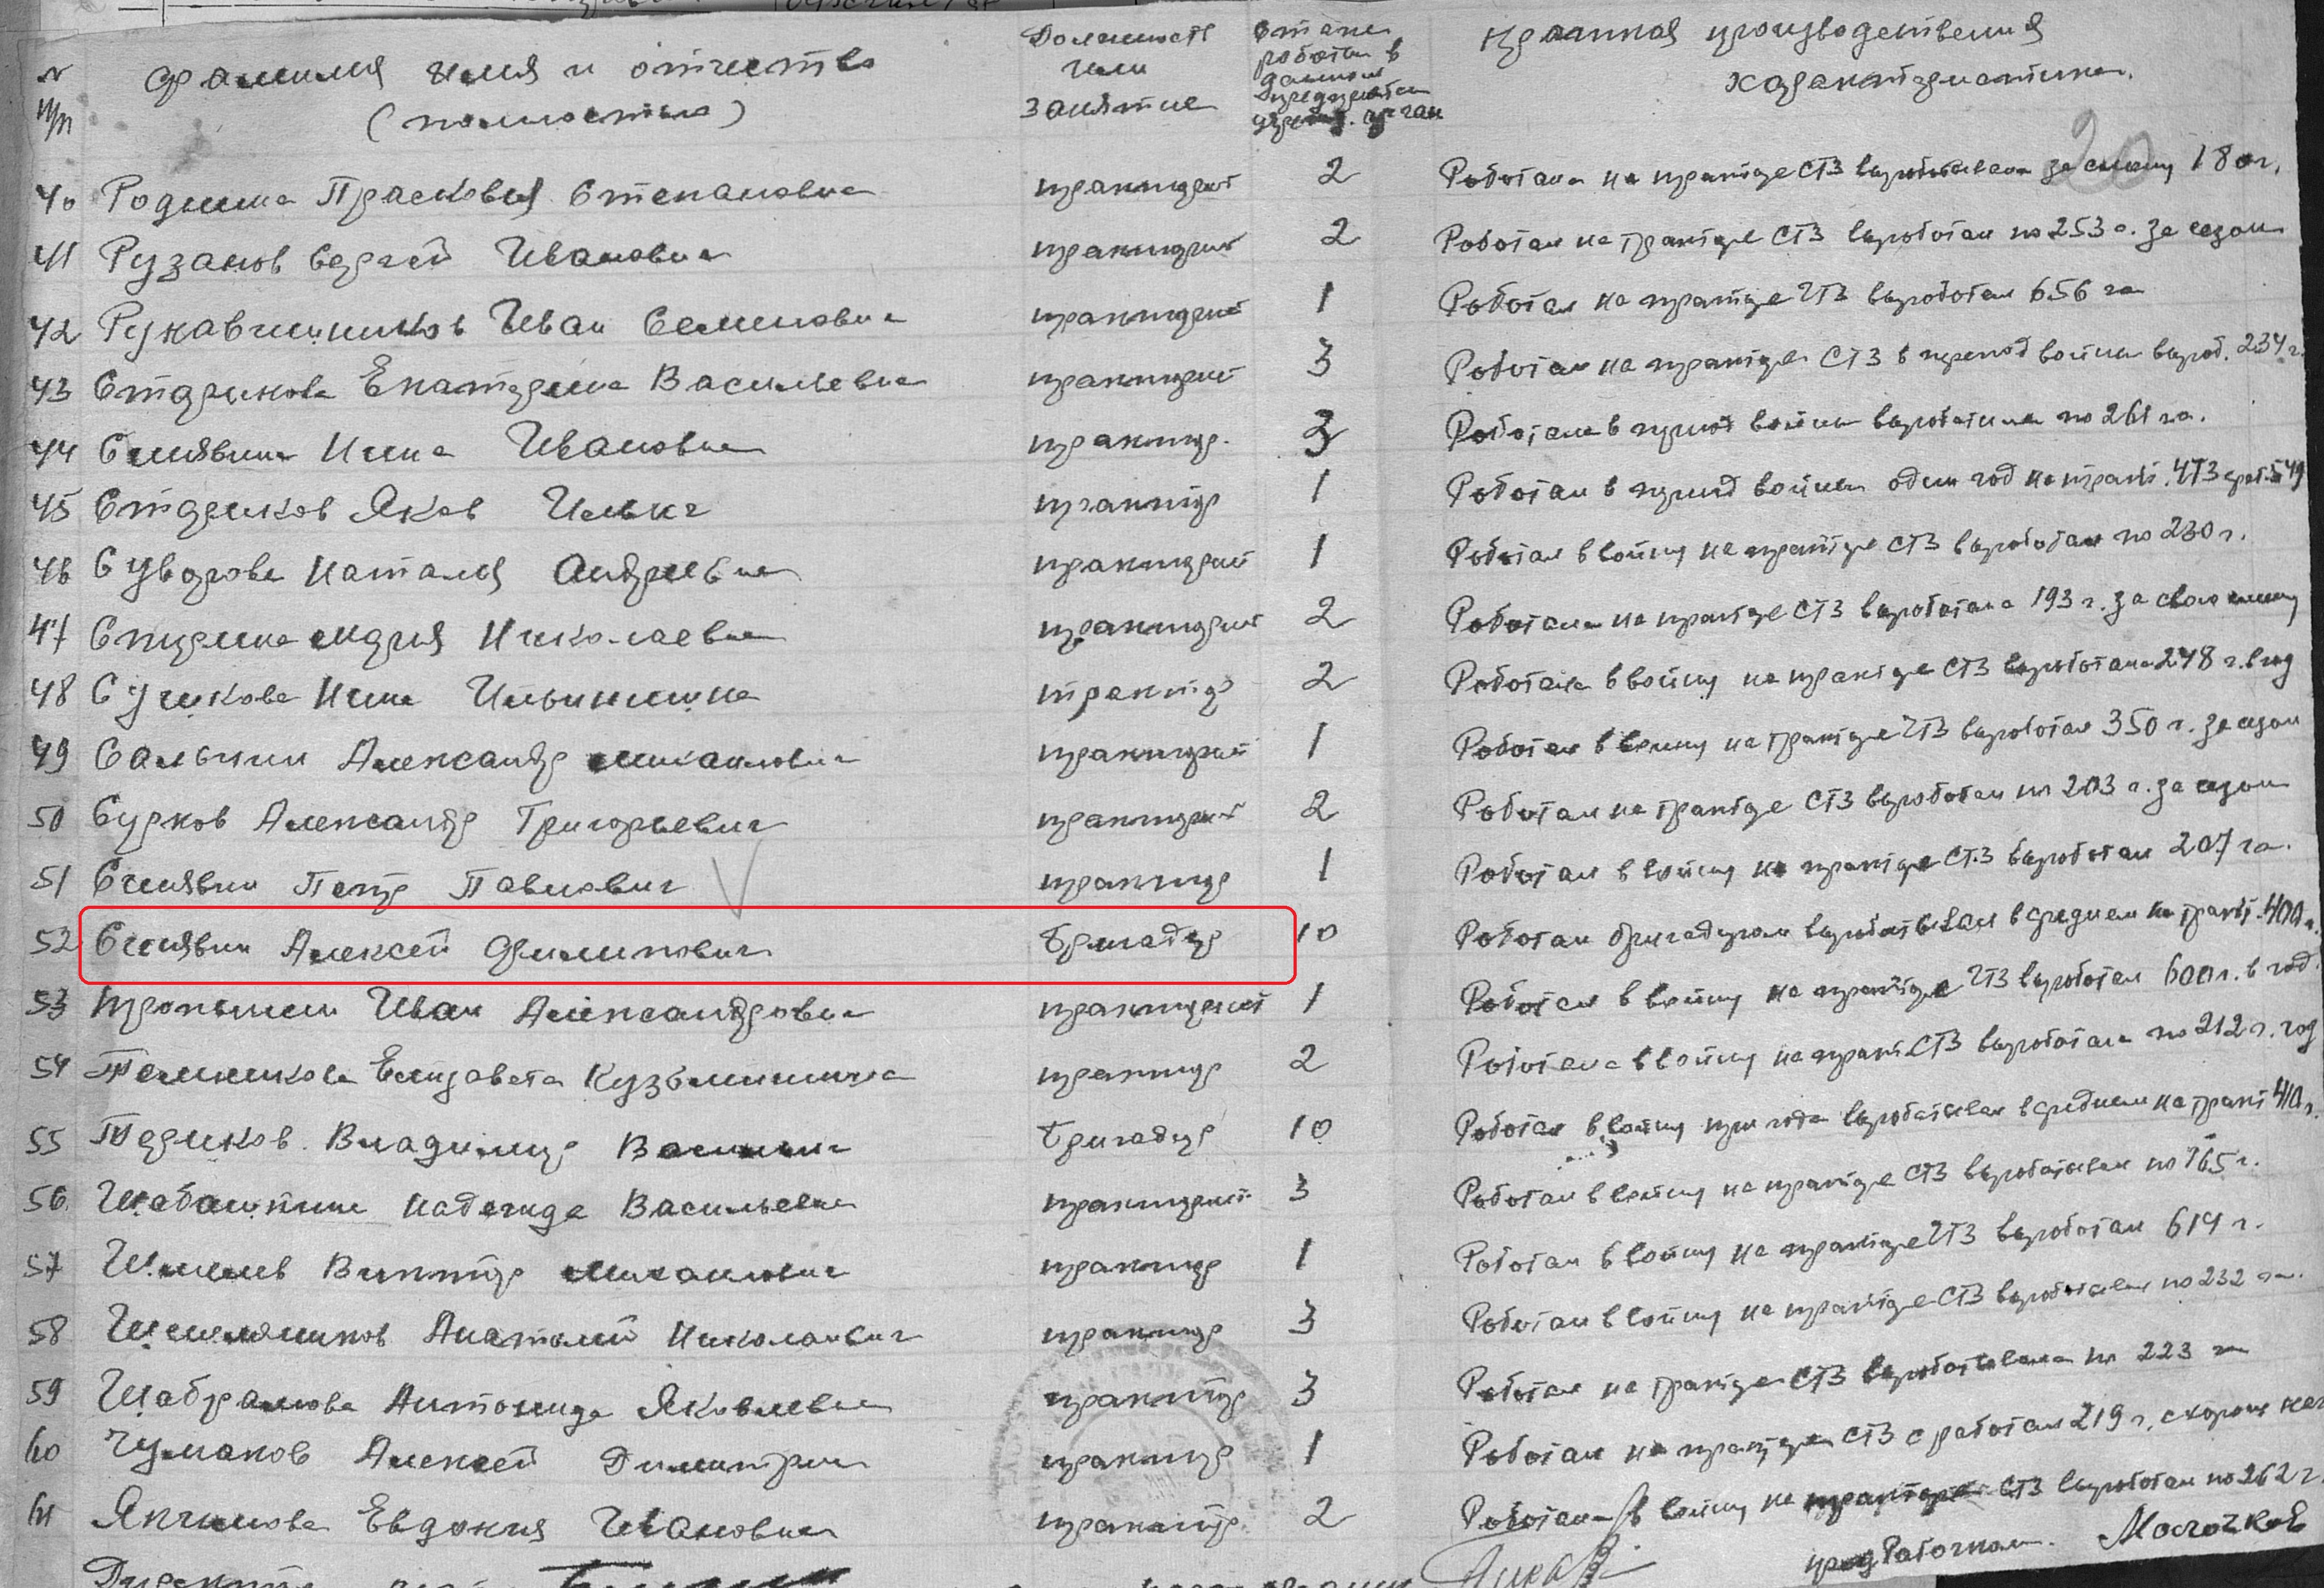 № п/п Фамилия имя и отчество (полностью) Должность или занятие Стаж работы в данном Краткая производственная характеристика.
20
40 Родина Прасковья Степановна тракторист 2 Работала на тракторе СТЗ вырабатывала за смену 180 г.
41 Рузанов Сергей Иванович тракторист 2 Работал на тракторе СТЗ выработал по 253 г. за сезон
42 Рукавишников Иван Семенович тракторист 1 Работал на тракторе ЧТЗ выработал 656 га
43 Старикова Екатерина Васильевна тракторист 3 Работала на тракторе СТЗ в период войны выраб. 234 г.
44 Синявина Нина Ивановна трактор. 3 Работала в период войны выработала по 261 га.
45 Стариков Яков Ильич трактор 1 Работал в период войны один год на тракт. ЧТЗ
46 Суворова Наталья Андреевна тракторист 1 Работал в войну на тракторе СТЗ выработал по 230 г.
47 Мария Николаевна тракторист 2 Работала на тракторе СТЗ выработала 193 г. за свою смену
48 Сушкова Нина Ильинична трактор 2 Работала в войну на тракторе СТЗ выработала 248 г. в год
49 Сальнин Александр Михайлович тракторист 1 Работал в войну на тракторе ЧТЗ выработал 350 г. за сезон
50 Сурков Александр Григорьевич тракторист 2 Работал на тракторе СТЗ выработал по 203 г. за сезон
51 Синявин Петр Павлович трактор 1 Работал в войну на тракторе СТЗ выработал 207 га.
52 Синявин Алексей Филипович Бригадир 10 Работал бригадиром вырабатывал в среднем на тракт. 400 г.
53 Иван Александрович тракторист 1 Работал в войну на тракторе ЧТЗ выработал 600 г. в год.
54 Темникова Елизавета Кузьминична трактор 2 Работала в войну на тракт. СТЗ выработала по 212 г. год
55 Териков Владимир Васильич Бригадир 10 Работал в войну три года вырабатывал в среднем на тракт 410 г.
56 Шабашкина Надежда Васильевна тракторист 3 Работал в войну на тракторе СТЗ вырабатывал по 165 г.
57 Виктор Михайлович трактор 1 Работал в войну на тракторе ЧТЗ выработал 614 г.
58 Анатолий Николаевич трактор 3 Работал в войну на тракторе СТЗ вырабатывал по 232 га.
59 Шабралова Антонида Яковлевна трактор 3 Работал на тракторе СТЗ вырабатывала по 223 га
60 Чумаков Алексей Димитрич трактор 1 Работал на тракторе СТЗ сработал 219 г.
61 Япчинова Евдокия Ивановна трактор 2 Работала в войну на тракторе СТЗ выработал по 262 г.
пред Рабочком.